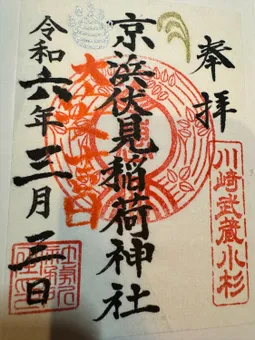 奉拝
川崎武蔵小杉
京浜伏見稲荷神社
令和六年三月三日